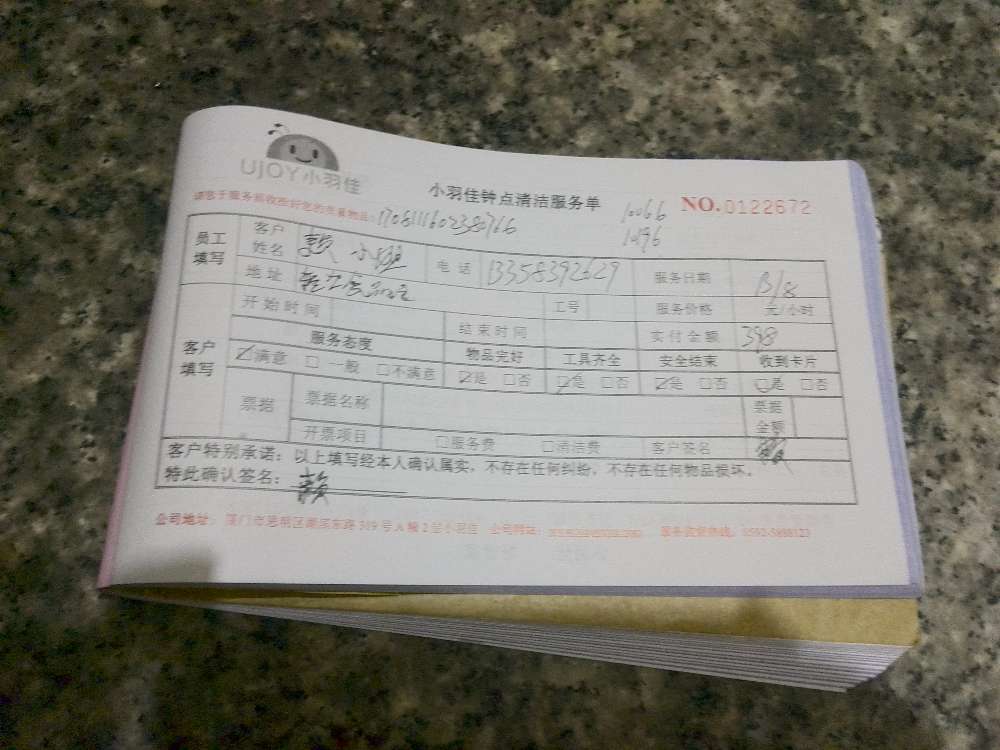 UJOY小羽佳
小羽佳钟点清洁服务单
10066
NO.0122672
1096
170811160238766
员工填写
客户姓名
电话 13358392629 服务日期 13/8
地址 工号 服务价格 元/小时
开始时间 结束时间 实付金额 398
客户填写
服务态度 物品完好 工具齐全 安全结束 收到卡片
☑满意 □一般 □不满意 ☑是 □否 ☑是 □否 ☑是 □否 ☑是 □否
票据 票据名称 票据金额
开票项目 □服务费 □清洁费 客户签名
客户特别承诺：以上填写经本人确认属实，不存在任何纠纷，不存在任何物品损坏。
特此确认签名：
公司地址：厦门市思明区湖滨东路319号A幢2层小羽佳 公司网站： 服务监督热线：